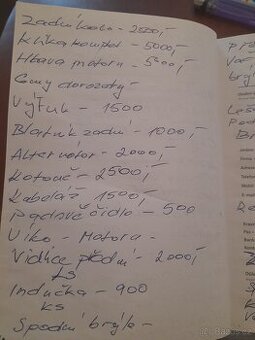 Zadní kolo - 2500,-
Klika komplet - 5000,-
Hlava motoru - 5500,-
Gumy dorazoty -
Výfuk - 1500
Blatník zadní - 1000,-
Alternátor - 2000,-
Kotouč - 2500,-
Kabeláž - 1500,-
Pádové čidlo - 500
Víko - Motoru -
Vidlice přední - 2000,-
ks
Indučka - 900
ks
Spodní brýle -